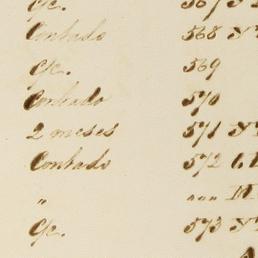 c/c. 567 N
Contado 568 N
c/c. 569
Contado 570
2 meses 571 N
Contado 572
"
c/c. 573 N